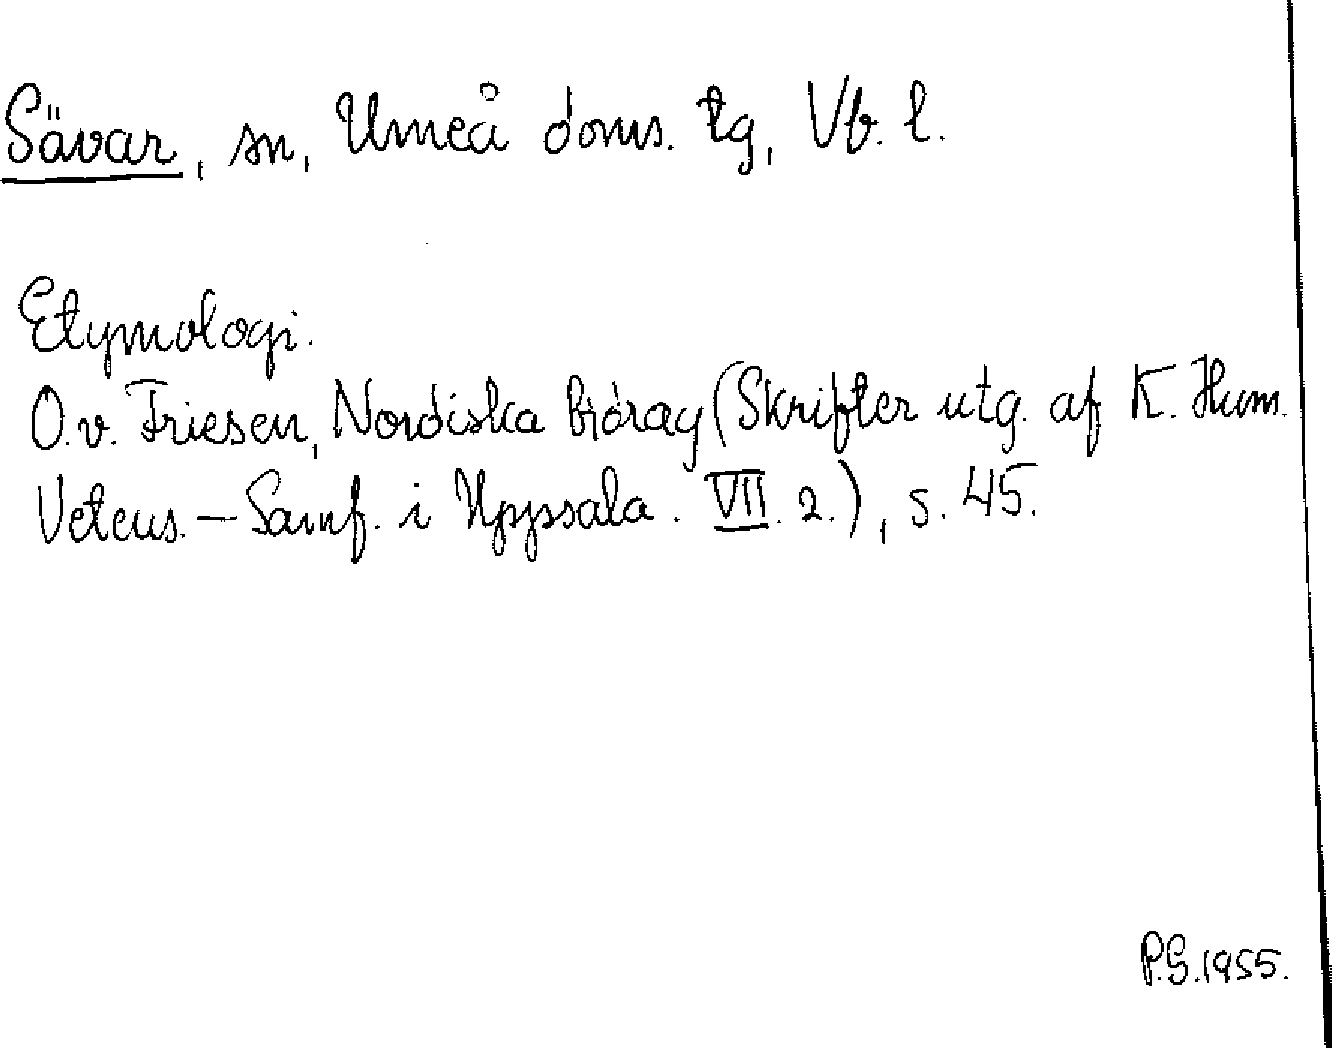 Sävar, sn, Umeå doms. tg, Vb. l.
Etymologi.
O. v. Friesen, Nordiska bidrag (Skrifter utg. af K. Hum.
Vetens. – Samf. i Uppsala. VII. 2.), s. 45.
P.G. 1955.